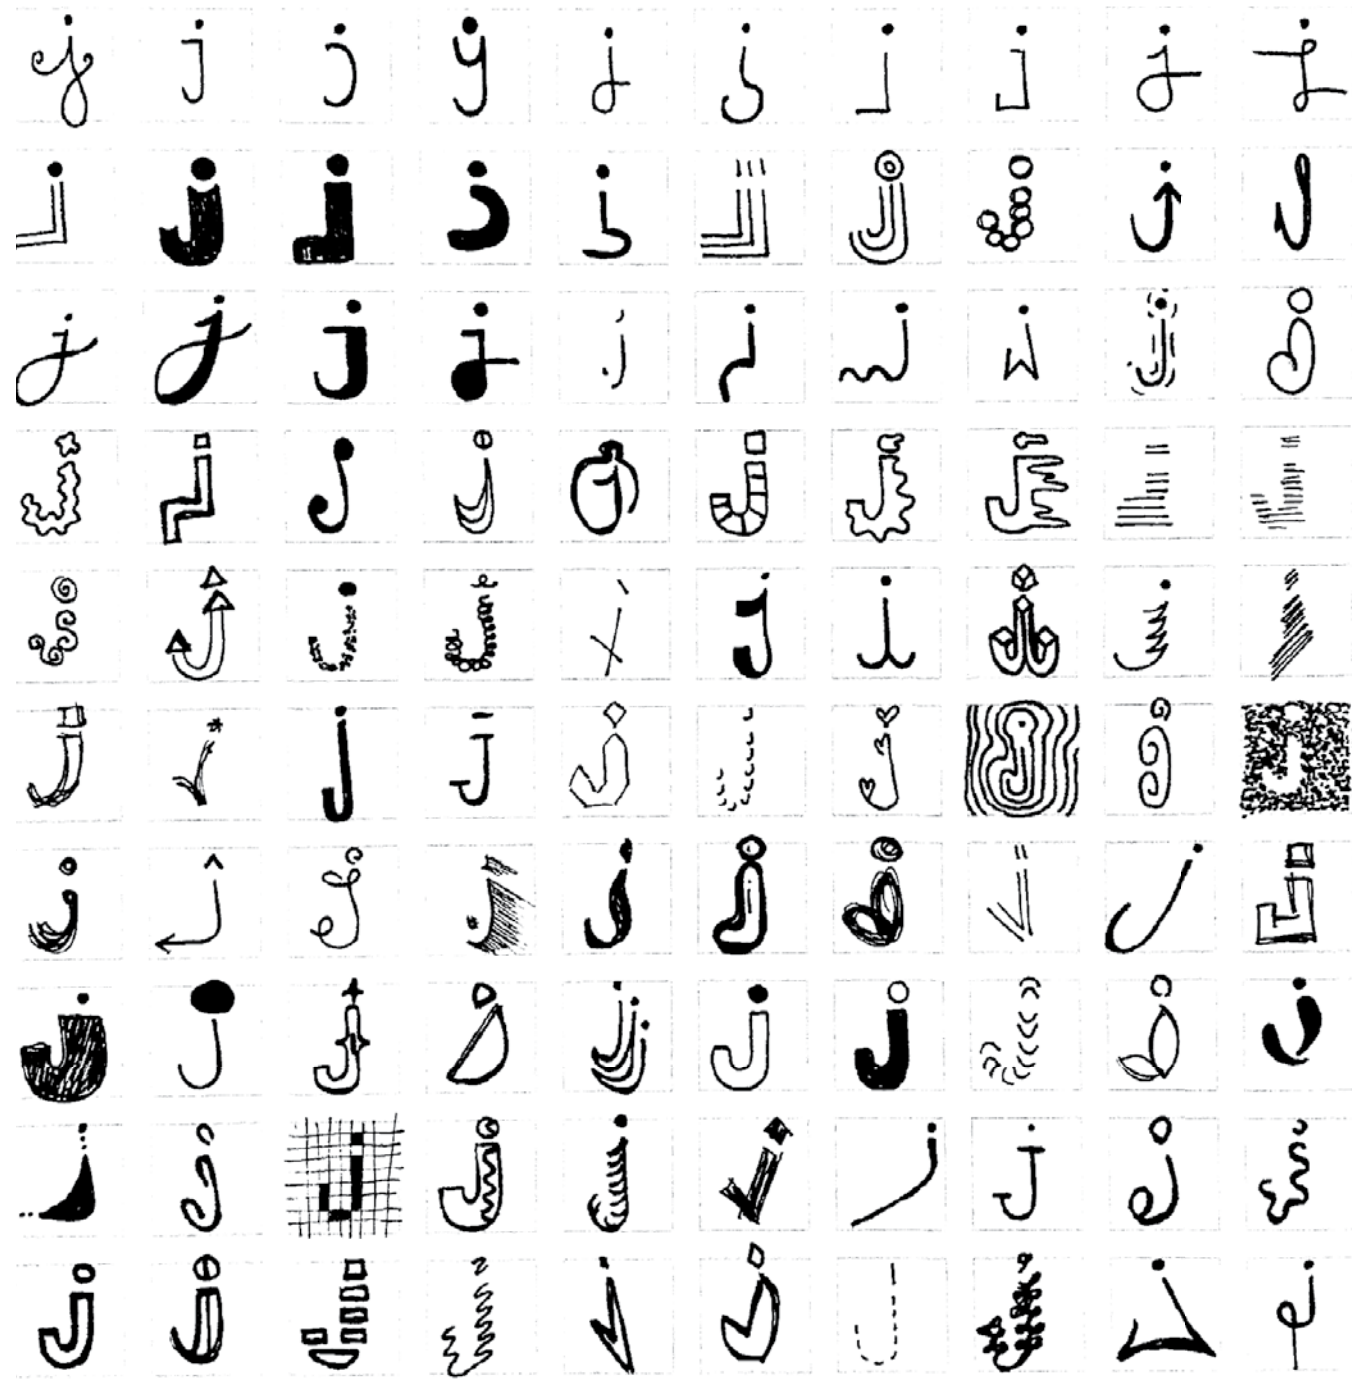 j j j j j j j j j j
j j j j j j j j j j
j j j j j j j j j j
j j j j j j j j j j
j j j j j j j j j j
j j j j j j j j j j
j j j j j j j j j j
j j j j j j j j j j
j j j j j j j j j j
j j j j j j j j j j